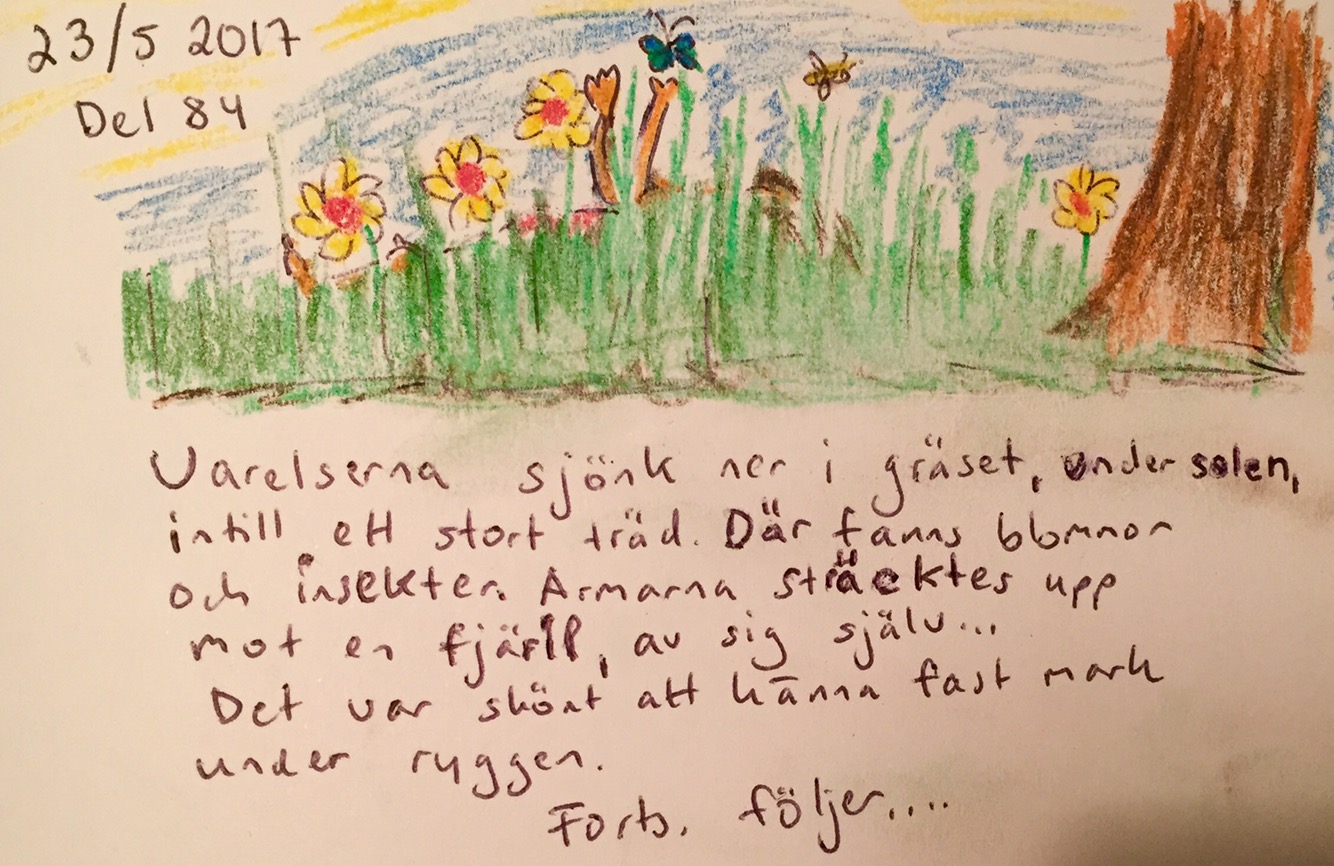 23/5 2017
Del 84
Varelserna sjönk ner i gräset, under solen,
intill ett stort träd. Där fanns blommor
och insekter. Armarna sträcktes upp
mot en fjäril, av sig själv...
Det var skönt att känna fast mark
under ryggen.
Forts. följer....